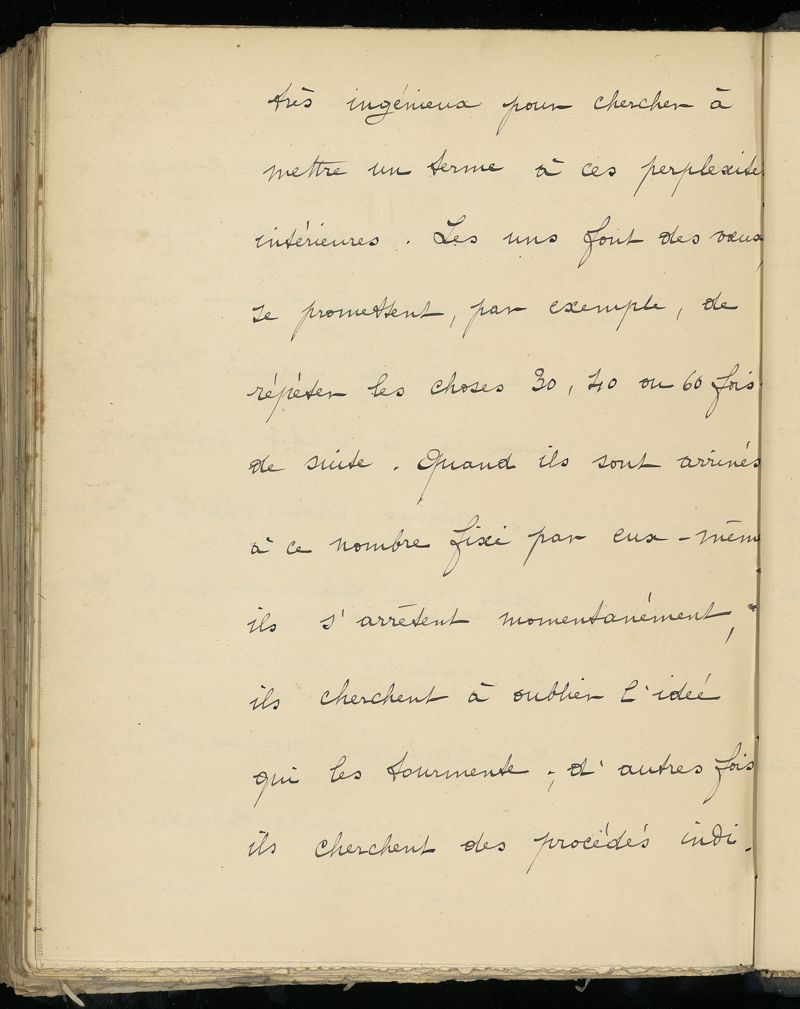 très ingénieux pour chercher à
mettre un terme à ces perplexité
intérieures. Les uns font des vœux
se promettent, par exemple, de
répéter les choses 30, 40 ou 60 fois
de suite. Quand ils sont arrivés
à ce nombre fixé par eux-mêm
ils s'arrêtent momentanément,
ils cherchent à oublier l'ideé
qui les tourmente ; d'autres fois
ils cherchent des procédés indi-